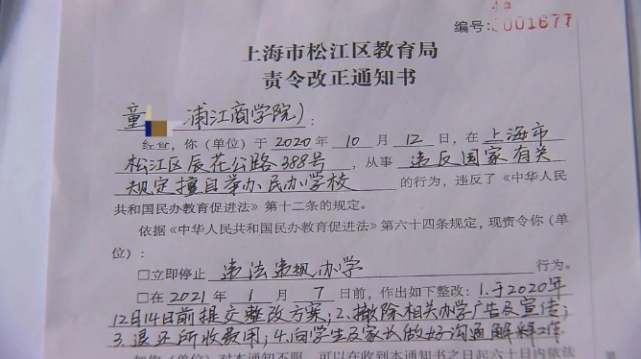 编号: 0001677
上海市松江区教育局
责令改正通知书
童 浦江商学院):
经查,你(单位)于2020年10月12日,在上海市
松江区辰花公路388号,从事违反国家有关
规定擅自举办民办学校的行为,违反了《中华人民
共和国民办教育促进法》第十二条的规定。
依据《中华人民共和国民办教育促进法》第六十四条规定,现责令你(单
位):
□立即停止 违法违规办学 行为。
□在2021年1月7日前,作出如下整改:1.于2020年
12月14日前提交整改方案;2.撤除相关办学广告及宣传;
3.退还所收费用;4.向学生及家长做好沟通解释工作
如你(单位)对本通知不服,可以在收到本通知书之日起六十日内依法